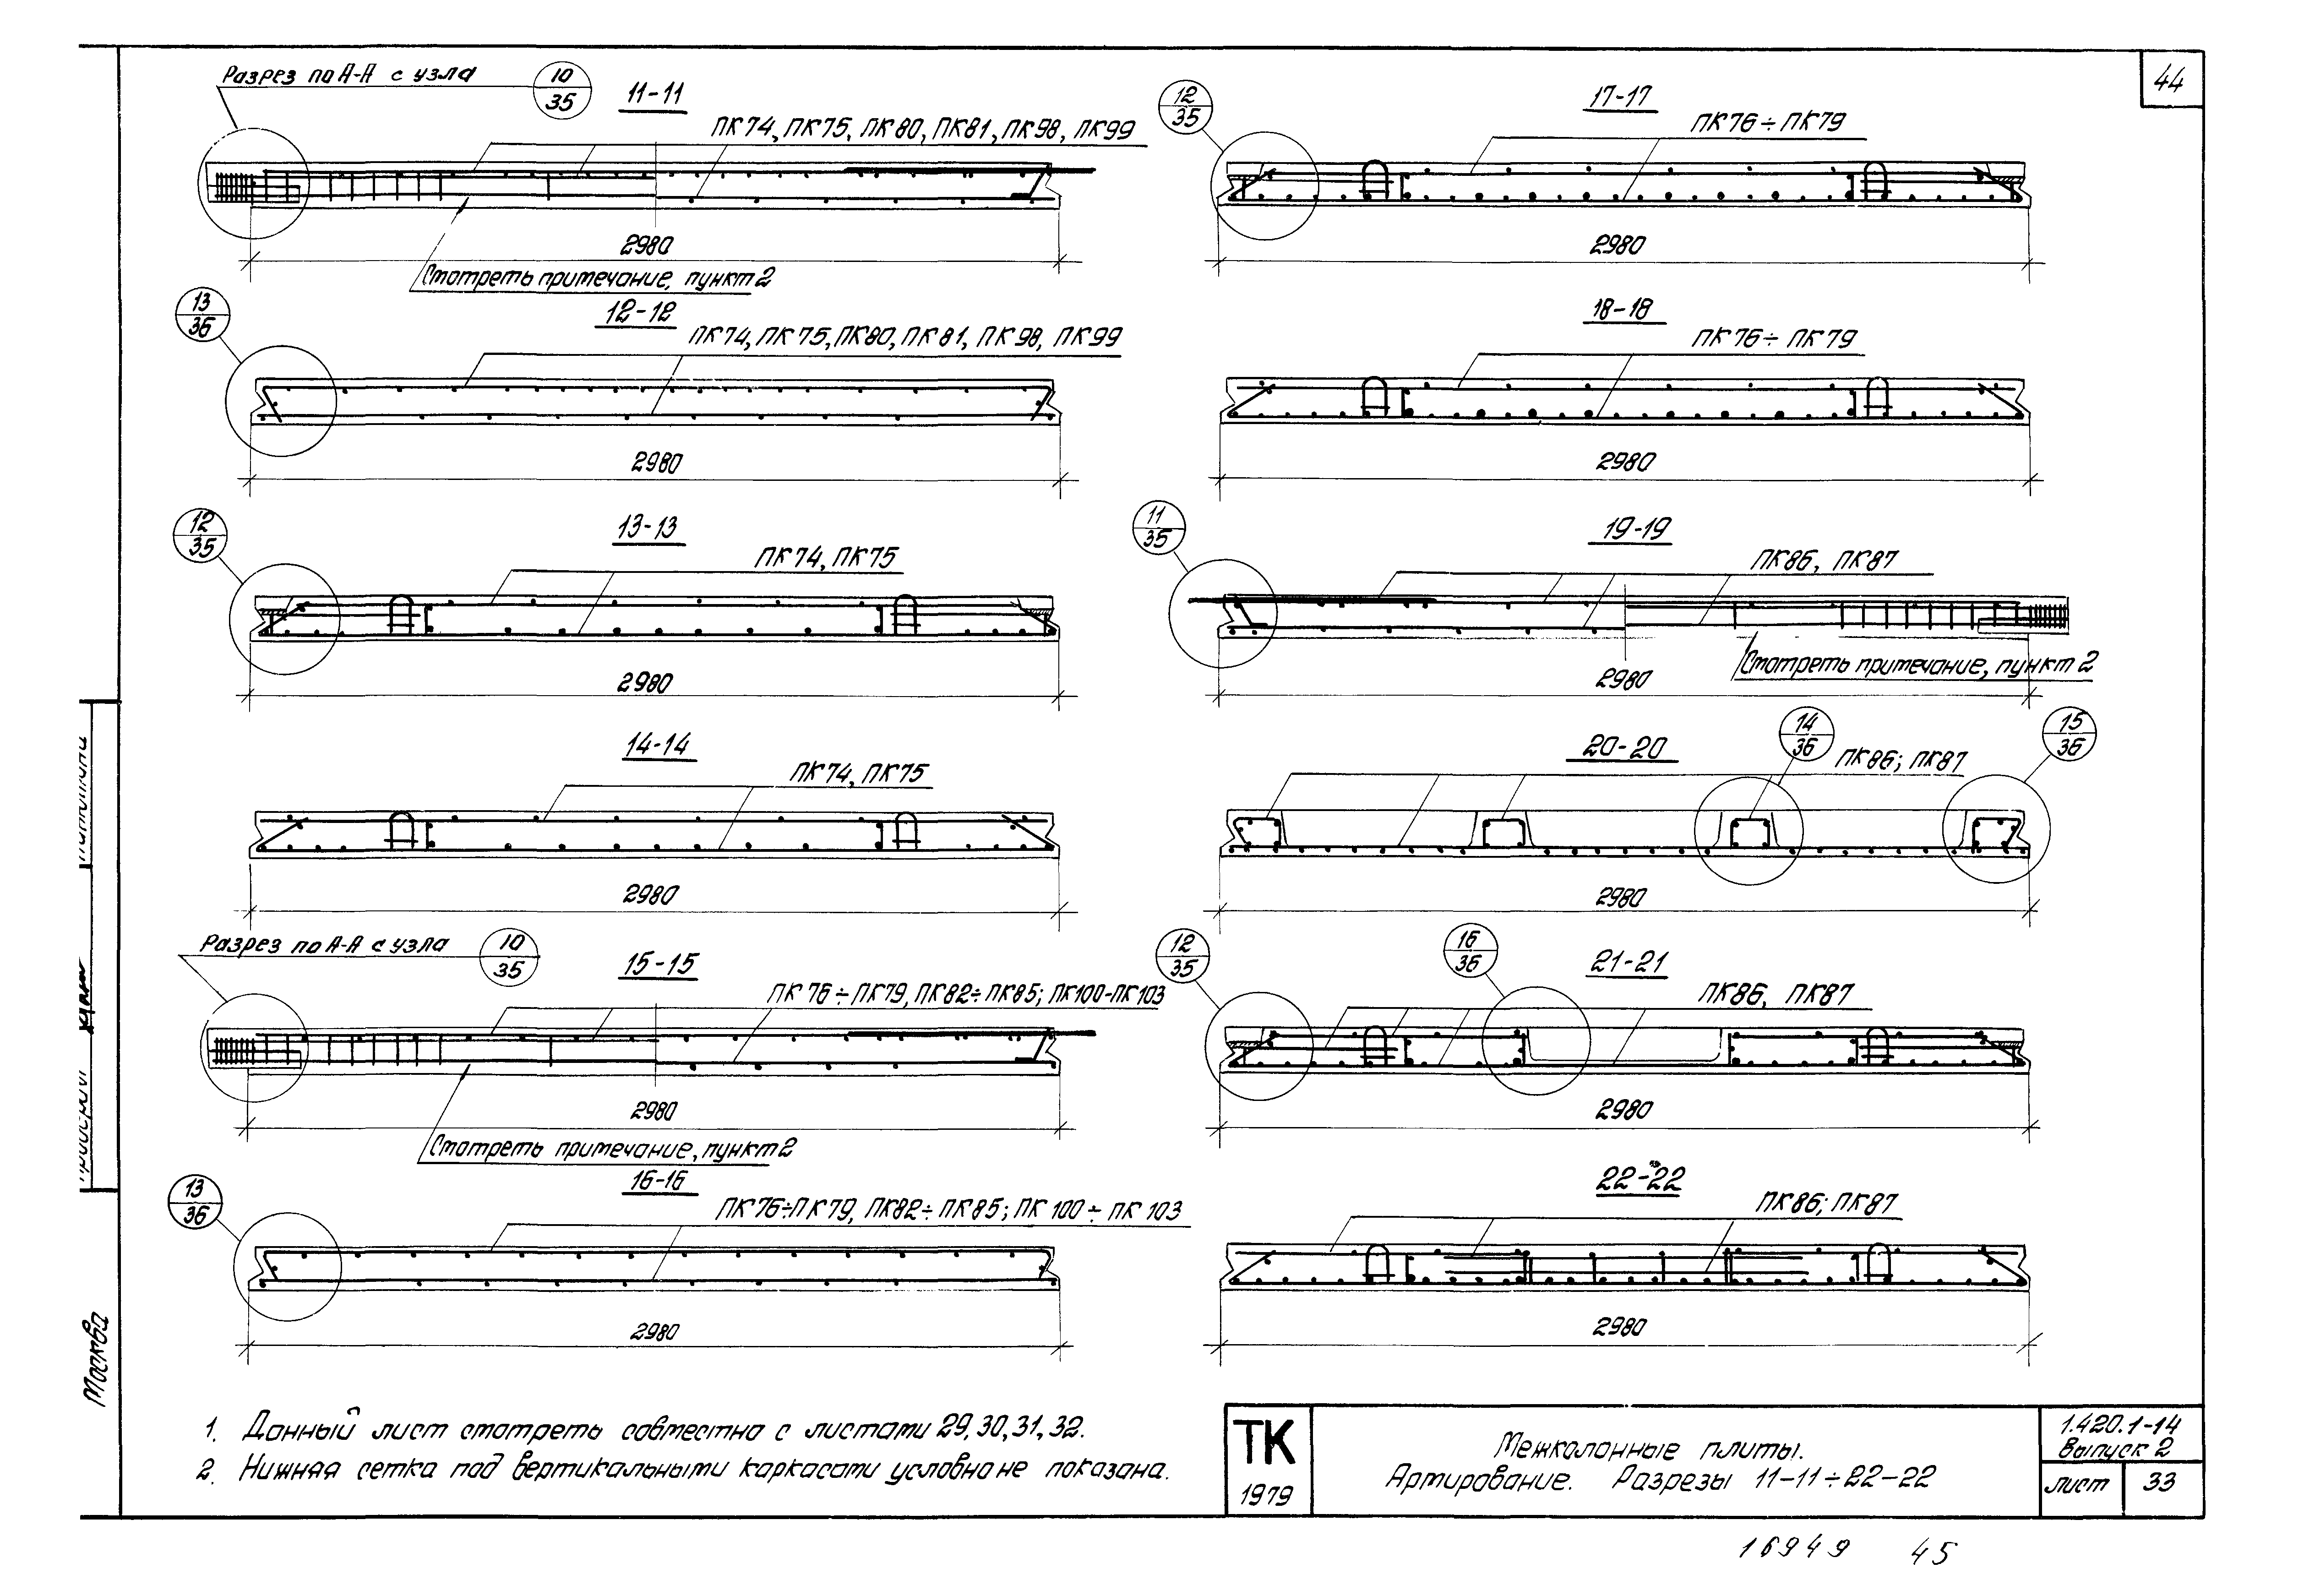 44
Разрез по А-А с узла 10/35
11-11
ПК74, ПК75, ПК80, ПК81, ПК98, ПК99
2980
Смотреть примечание, пункт 2
13/36
12-12
ПК74, ПК75, ПК80, ПК81, ПК98, ПК99
2980
12/35
13-13
ПК74, ПК75
2980
14-14
ПК74, ПК75
2980
Разрез по А-А с узла 10/35
15-15
ПК76÷ПК79, ПК82÷ПК85; ПК100-ПК103
2980
Смотреть примечание, пункт 2
13/36
16-16
ПК76÷ПК79, ПК82÷ПК85; ПК100÷ПК103
2980
12/35
17-17
ПК76÷ПК79
2980
18-18
ПК76÷ПК79
2980
11/35
19-19
ПК86, ПК87
2980
Смотреть примечание, пункт 2
20-20
14/36
ПК86; ПК87
15/36
2980
12/35
16/36
21-21
ПК86, ПК87
2980
22-22
ПК86; ПК87
2980
1. Данный лист смотреть совместно с листами 29, 30, 31, 32.
2. Нижняя сетка под вертикальными каркасами условно не показана.
ТК
1979
Межколонные плиты.
Армирование. Разрезы 11-11÷22-22
1.420.1-14
Выпуск 2
лист 33
Москва
16949 45